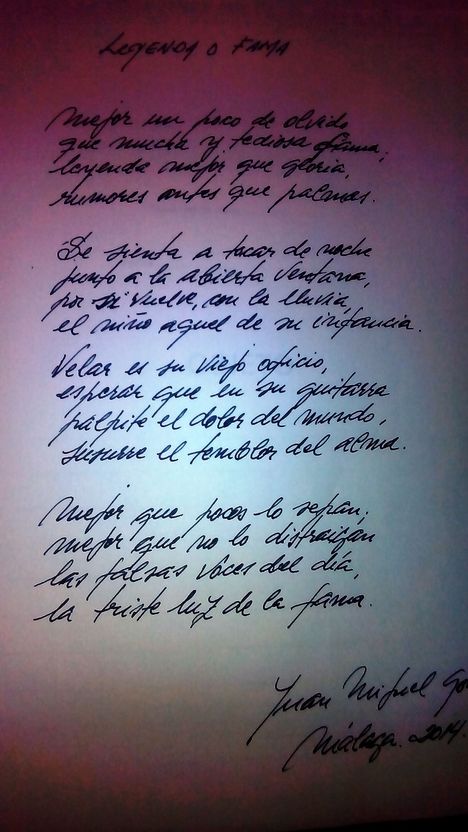 LEYENDA O FAMA
Mejor un poco de olvido
que mucha y tediosa fama;
leyenda mejor que gloria,
rumores antes que palmas.
Se sienta a tocar de noche
junto a la abierta ventana,
por si vuelve, con la lluvia,
el niño aquel de su infancia.
Velar es su viejo oficio,
esperar que en su guitarra
palpite el dolor del mundo,
susurre el temblor del alma.
Mejor que pocos lo sepan;
mejor que no lo distraigan
las falsas voces del día,
la triste luz de la fama.
Juan Miguel Go
Málaga. 2014.